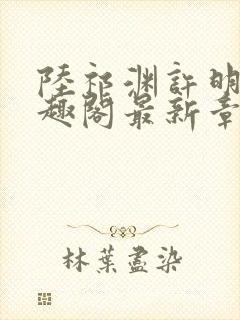 陸祁渊許明
趣閣最新章
林葉盡染